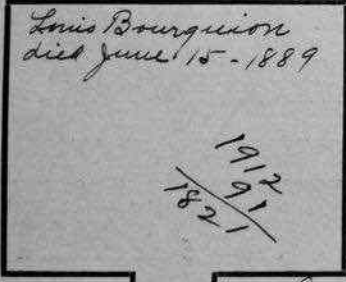 Louis Bourguion
died June 15 - 1889
1912
91
1821